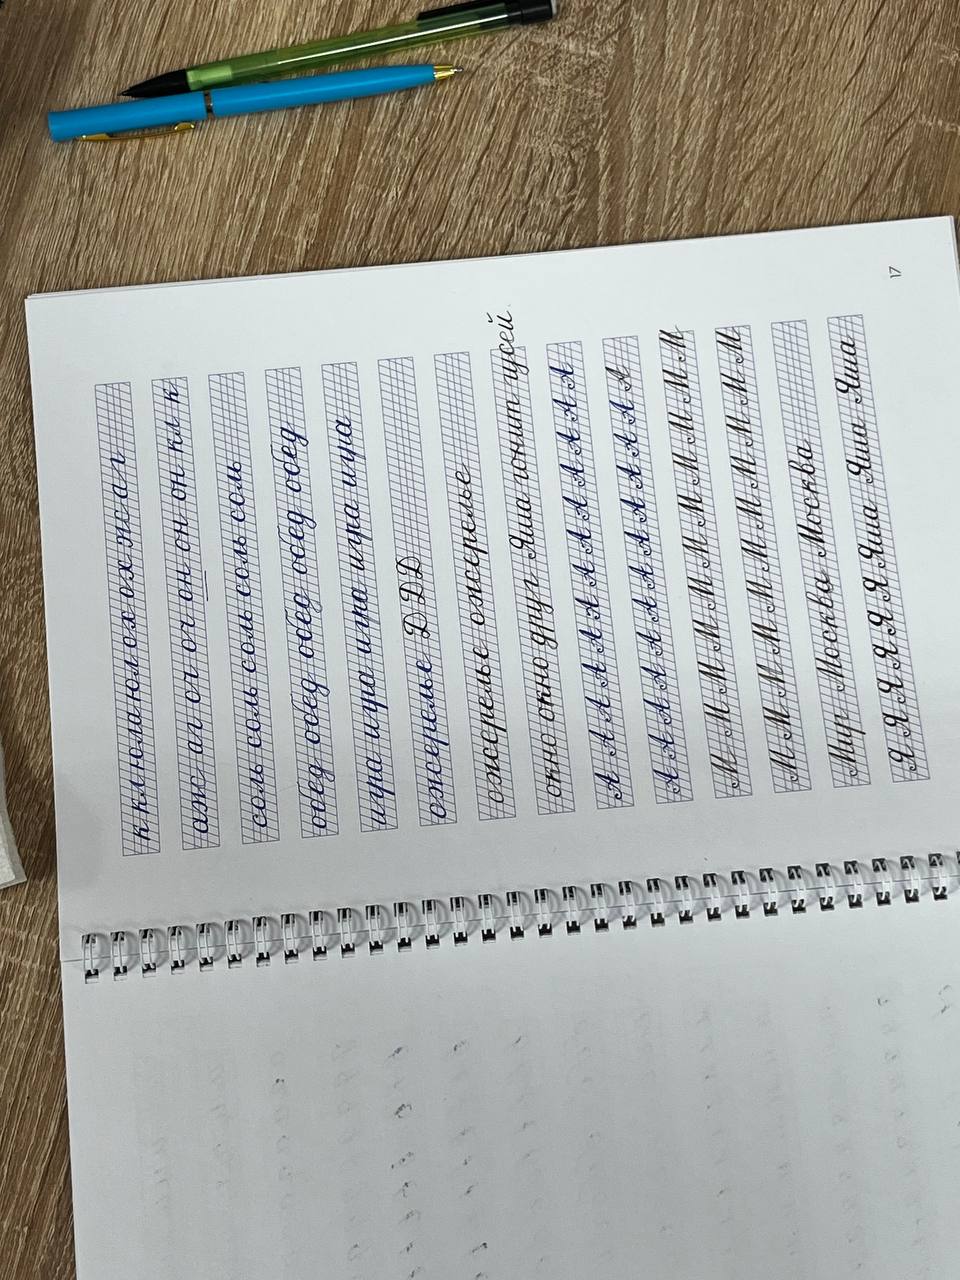 к кл юл аюл ол ох жал
аж аг ог оч он он он кл к
соль соль соль соль соль
обед обед обед обед обед
игра игра игра игра игра
ожерелье Д Д Д
ожерелье ожерелье
окно окно друг Яша гонит гусей.
А А А А А А А А А А А
А А А А А А А А А А
М М М М М М М М М М М
М М М М М М М М М М М
Мир Москва Москва
Я Я Я Я Я Яша Яша Яша
17